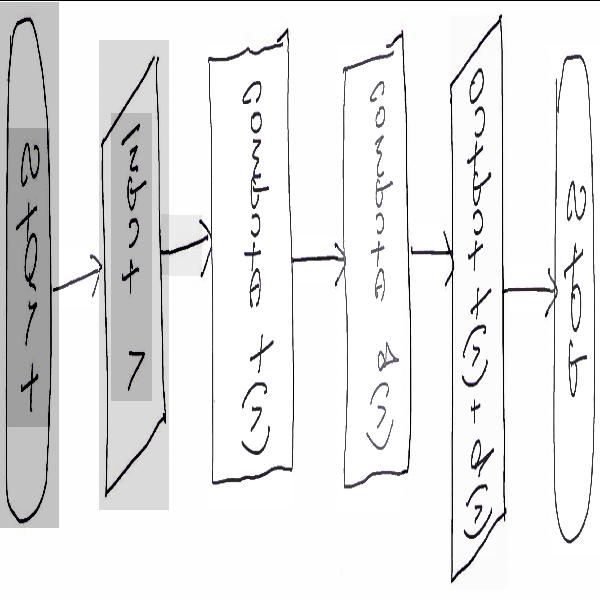 Start
Input r
Compute f(r)
Compute g(r)
Output f(r), g(r)
Stop